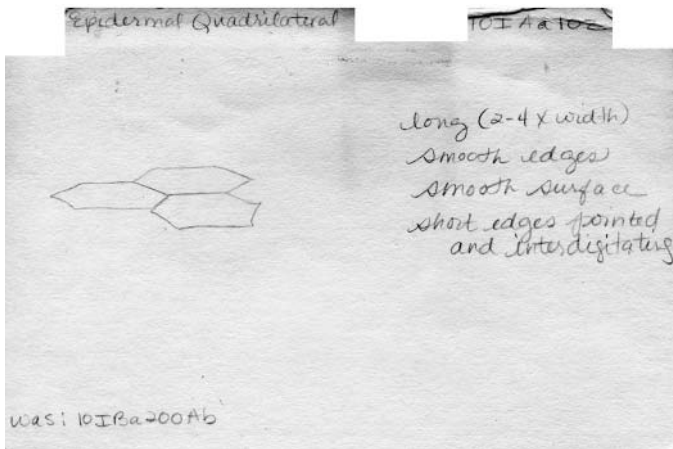 Epidermal Quadrilateral
10IAa102
long (2-4 x width)
smooth edges
smooth surface
short edges pointed
and interdigitating
was: 10IBa200Ab